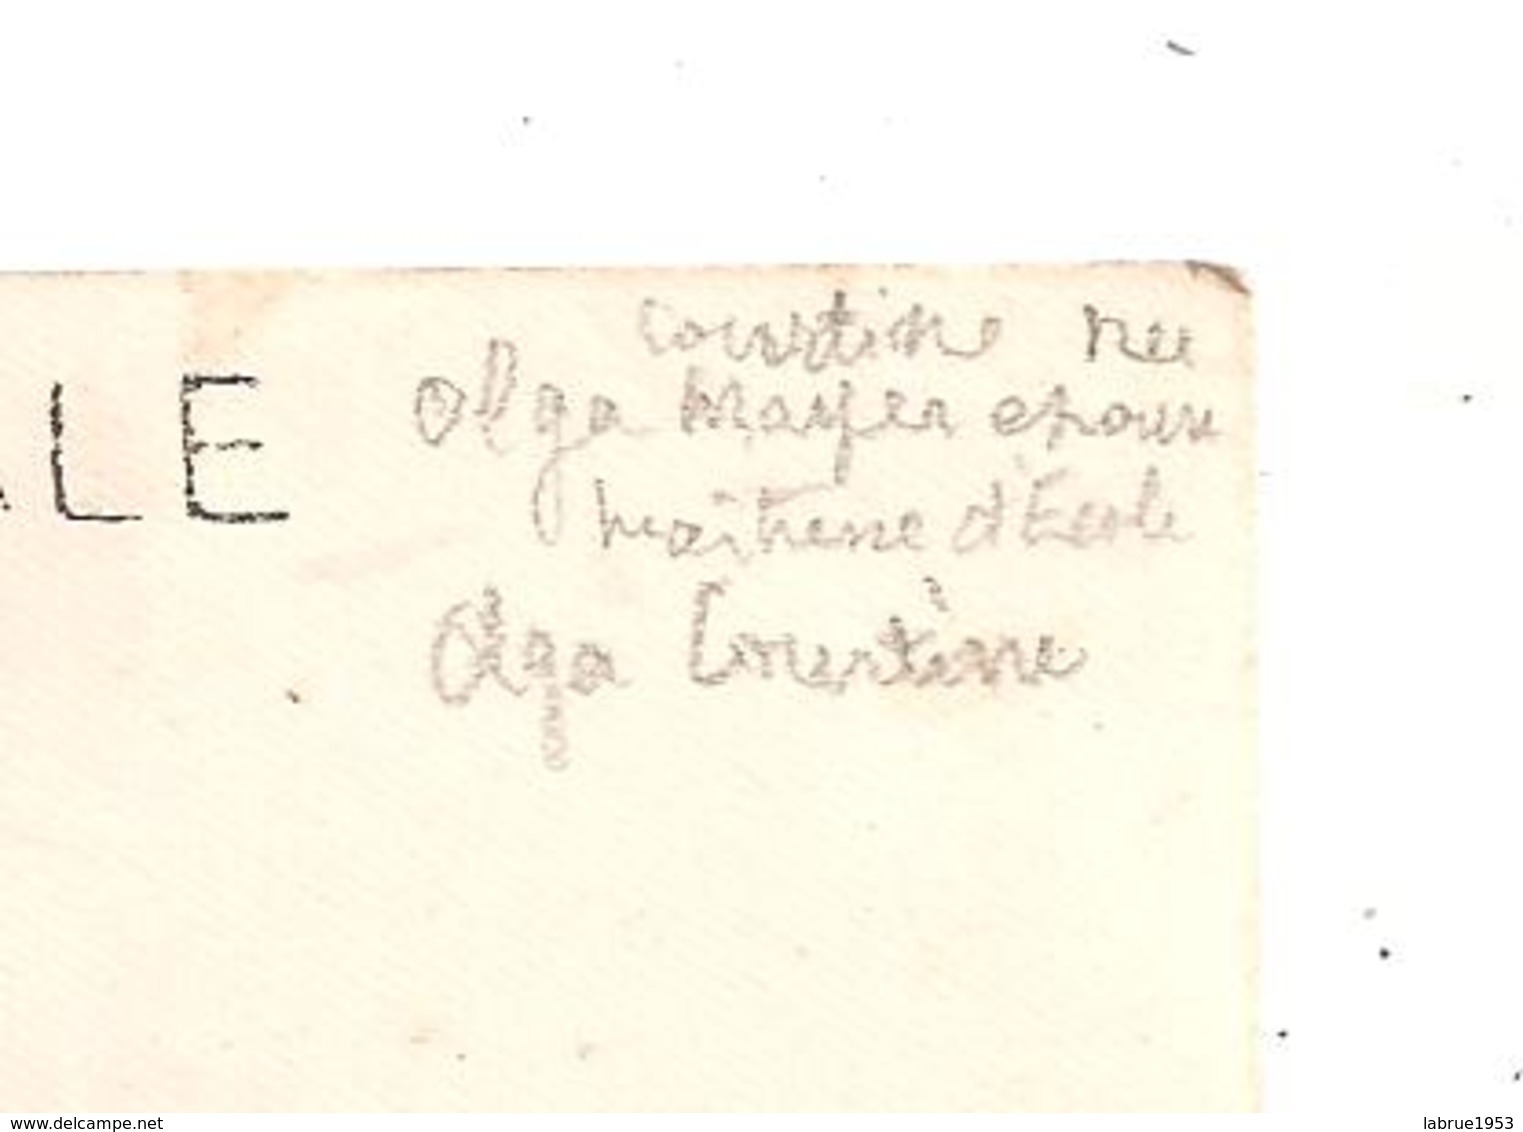 Courtine née
Olga Mayer epouse
LE
maîtresse d'Ecole
Olga Courtine
www.delcampe.net
labrue1953